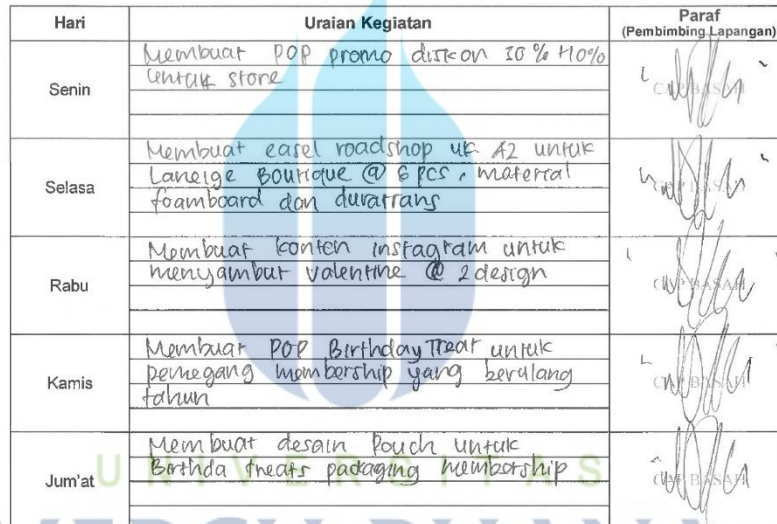 Hari Uraian Kegiatan Paraf
(Pembimbing Lapangan)
Senin
Membuat POP promo diskon 30% +10%
untuk store
CAP BASAH
Selasa
Membuat easel roadshop uk A2 untuk
Laneige Boutique @ 6 pcs, material
foamboard dan duratrans
CAP BASAH
Rabu
Membuat konten instagram untuk
menyambut valentine @ 2 design
CAP BASAH
Kamis
Membuat POP Birthday Treat untuk
pemegang membership yang berulang
tahun
CAP BASAH
Jum'at
Membuat desain Pouch untuk
Birthda treats packaging membership
CAP BASAH
UNIVERSITAS